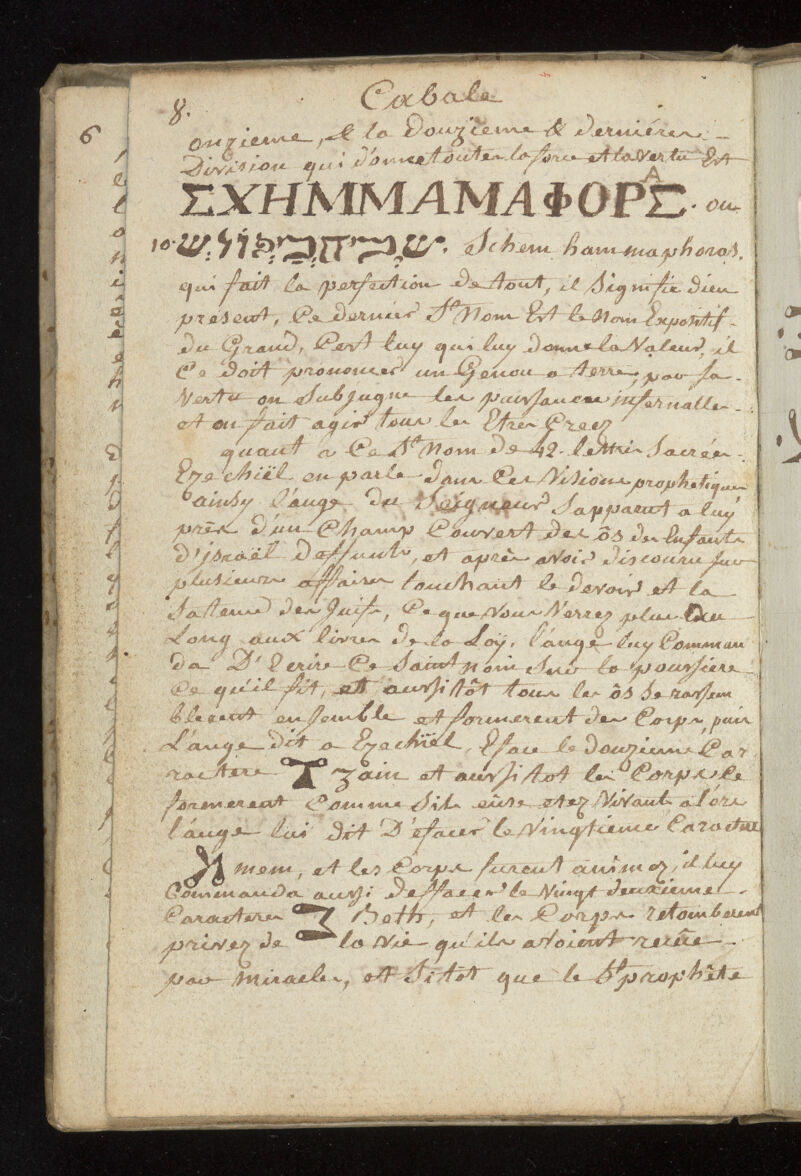 8.
Cabale
onzieme, & la Douzieme & derniére
Division qui donne toute la force et la vertu Est
A
ΣΧΗΜΜΑΜΑΦΟΡΣ. ou
10. Schem hammaphoras.
qui fait la perfection de tout, il signifie dieu
present, Ce dernier St Nom Est le Nom Expositif
du Grand, C'est luy qui luy donne la Valeur, il
Ce doit prononcer un Genou a terre, par sa
Vertu on Subjugue les puissances infernalles
et on fait agir tous les Etres Creez
quant a Ce St Nom de 42. lettres Sacrées
Ezechiël en parle dans Ces Visions prophetiques
ainsy l'ange du Seigneur S'apparut a luy
prés d'un Champ Couvert des ôs des Enfants
d'israël deffunts, et aprés avoir discouru sur
plusieurs affaires touchant le devoir et la
des Juifs, Ce que vous Verrez plus au
Long aux livres de la Loÿ, l'ange luy Comman
da D'Ecrire Ce Saint nom Sur la poussiere
Ce qu'il fit, et aussitôt tous les ôs se rassem
blerent ensemble et formerent des Corps, puis
L'ange dit a Ezechïel, Eface le douzieme Car
ractere zain et aussitot les Corps Ce
formerent Comme Sils eûse etez Vivant alors
l'ange lui dit D'efacer le Vingtieme Caractere
mem, et les Corps furent animez, il luy
Commanda aussi deffacer le Vingt deuxieme
Caractere Beth, et les Corps retomberent
privez de la vie qu'ils avoient recûe
par miracle, et Sitot que le St prophête
6